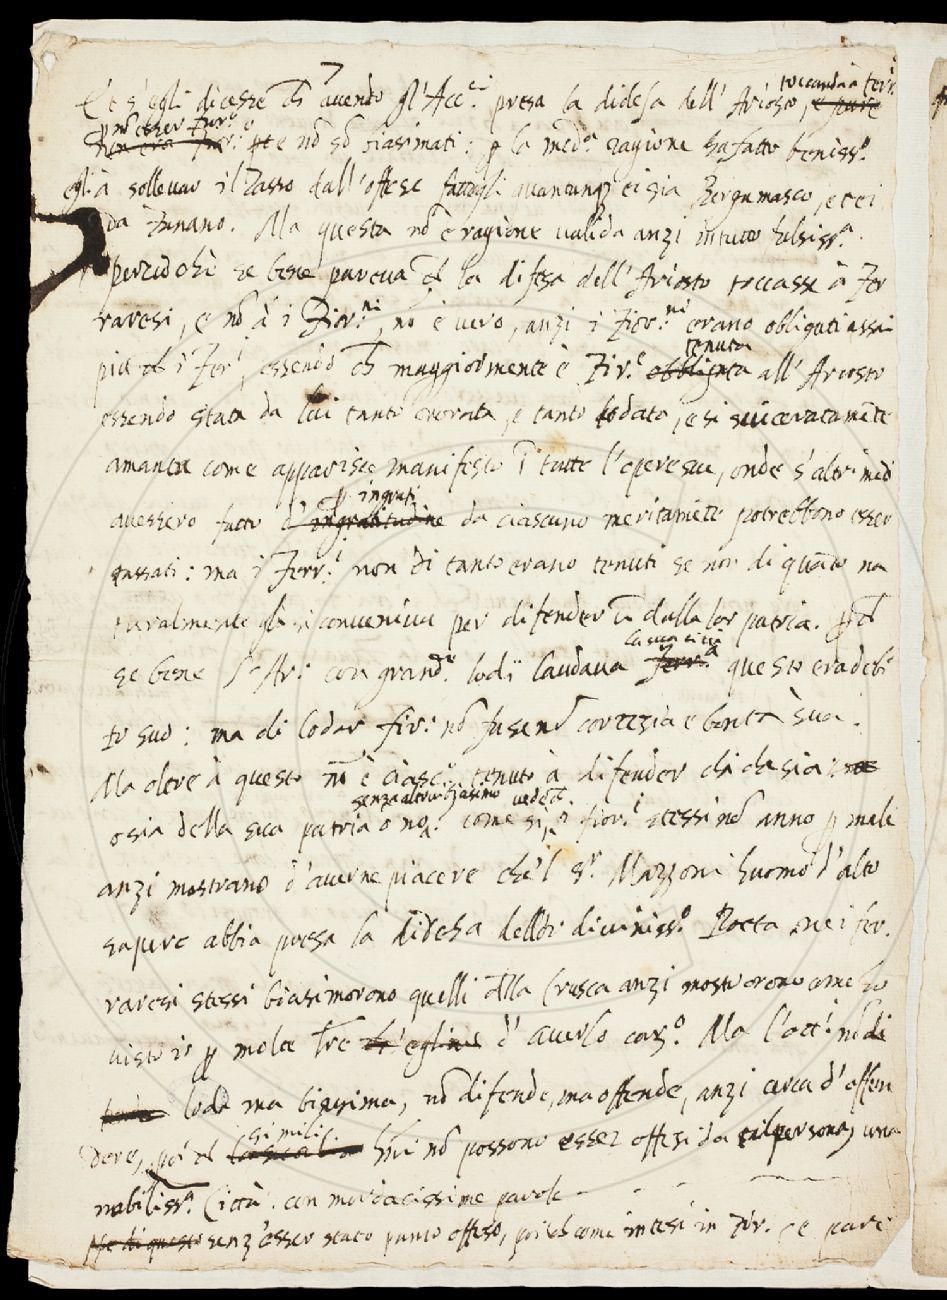 E s'egli dicesse ch avendo gl'Acc.ci presa la difesa dell' Ariosto, toccando a ferr. e pure
non era per: p nō esser Fior.o e nō sō biasimati: p la med.a ragione ha fatto beniss.o
egli à sollevar il Tasso dall'offese fattegli quantunq ei sia Bergamasco, e cei
da Fanano. Ma questa nō è ragione valida anzi in tutto falsiss.a
perciochè se bene pareva ch la difesa dell'Ariosto toccasse à Fer
raresi, e nō à i Fior.ni, nō è vero, anzi i Fior.ni erano obligati assai
più ch i Fer.i essendo ch maggiormente è Fir.e obbligata tenuta all'Ariosto
essendo stata da lui tanto onorata, e tanto lodata, e si svisceratamēte
amata come apparisce manifesto ī tutte l'opere sue, onde s'altrimēti
avessero fatto d' ingratitudine p ingrati da ciascuno meritamēte potrebbono esser
tassati: ma i Ferr.i non di tanto erano tenuti se non di quāto na
turalmente gli si conveniva per difender ū dalla lor patria. p ch
se bene l'Ar: con grand.e lodi laudava Ferr.a la sua città questo era debi
to suo: ma di lodar fir: nō fu senō cortesia e bontà sua.
Ma oltre à questo nō è ciasc.o tenuto à difender chi che sia: ne
o sia della sua patria o no. senza altrui biasimo come si vedē i fior.i stessi nō anno p male
anzi mostrano d'averne piacere che'l S.r Mazzoni huomo d'alto
sapere abbia presa la difesa dell' diviniss.o Poeta, ne i fer.
raresi stessi biasimorono quelli della Crusca anzi mostrorono come ho
visto io p molte lre ch'eglino d'averlo caro. Ma l'att.i nō di
fende loda ma biasima, nō difende, ma offende, anzi cerca d'offen
dere, poi ch simili hūi nō possono esser offesi da tal persona, una
nobiliss.a Città con mordacissime parole
Ne di questo senz'esser stato punto offeso, poi ch come intesi in Fir. se pare